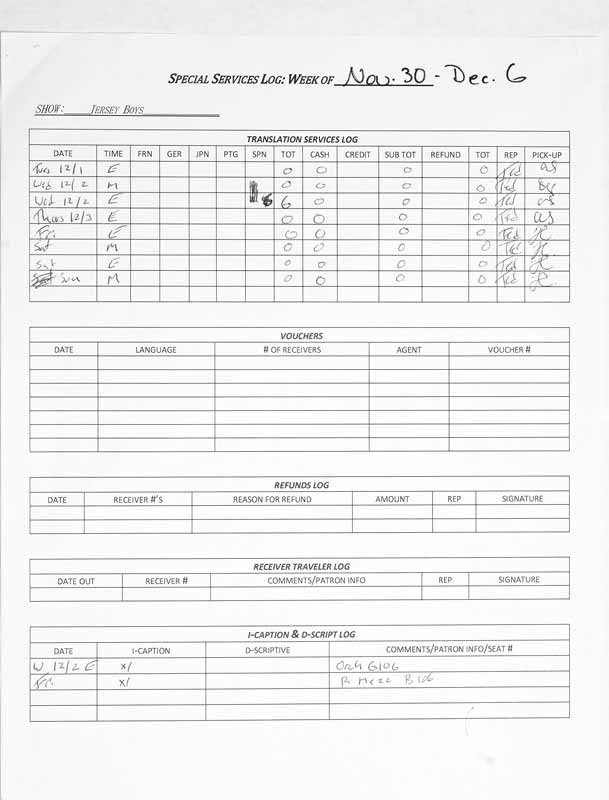 SPECIAL SERVICES LOG: WEEK OF Nov. 30 - Dec. 6
SHOW: JERSEY BOYS
TRANSLATION SERVICES LOG
DATE TIME FRN GER JPN PTG SPN TOT CASH CREDIT SUB TOT REFUND TOT REP PICK-UP
Tues 12/1 E 0 0 0 0 Ted as
Wed 12/2 M 0 0 0 0 Ted
Wed 12/2 E 6 6 0 0 0 Ted as
Thurs 12/3 E 0 0 0 0 Ted as
Fri. E 0 0 0 0 Ted
Sat M 0 0 0 0 Ted
Sat E 0 0 0 0 Ted
Sun M 0 0 0 0 Ted
VOUCHERS
DATE LANGUAGE # OF RECEIVERS AGENT VOUCHER #
REFUNDS LOG
DATE RECEIVER #'S REASON FOR REFUND AMOUNT REP SIGNATURE
RECEIVER TRAVELER LOG
DATE OUT RECEIVER # COMMENTS/PATRON INFO REP SIGNATURE
I-CAPTION & D-SCRIPT LOG
DATE I-CAPTION D-SCRIPTIVE COMMENTS/PATRON INFO/SEAT #
W 12/2 E x/ Orch G106
Fri. x/ R Mezz B106